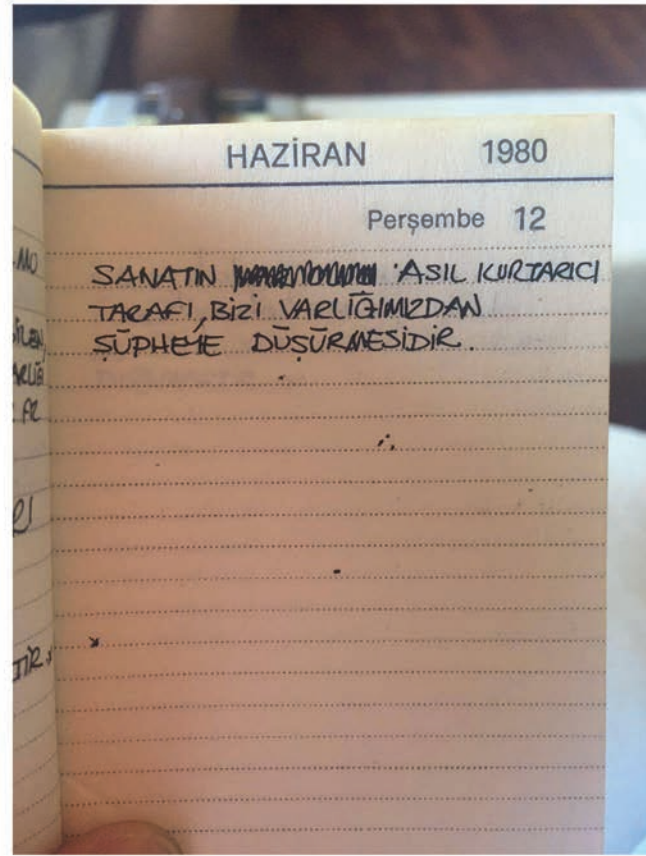 HAZİRAN 1980
Perşembe 12
SANATIN ASIL KURTARICI
TARAFI, BİZİ VARLIĞIMIZDAN
ŞÜPHEYE DÜŞÜRMESİDİR.
MO
ARLIĞI
RI
TİR.